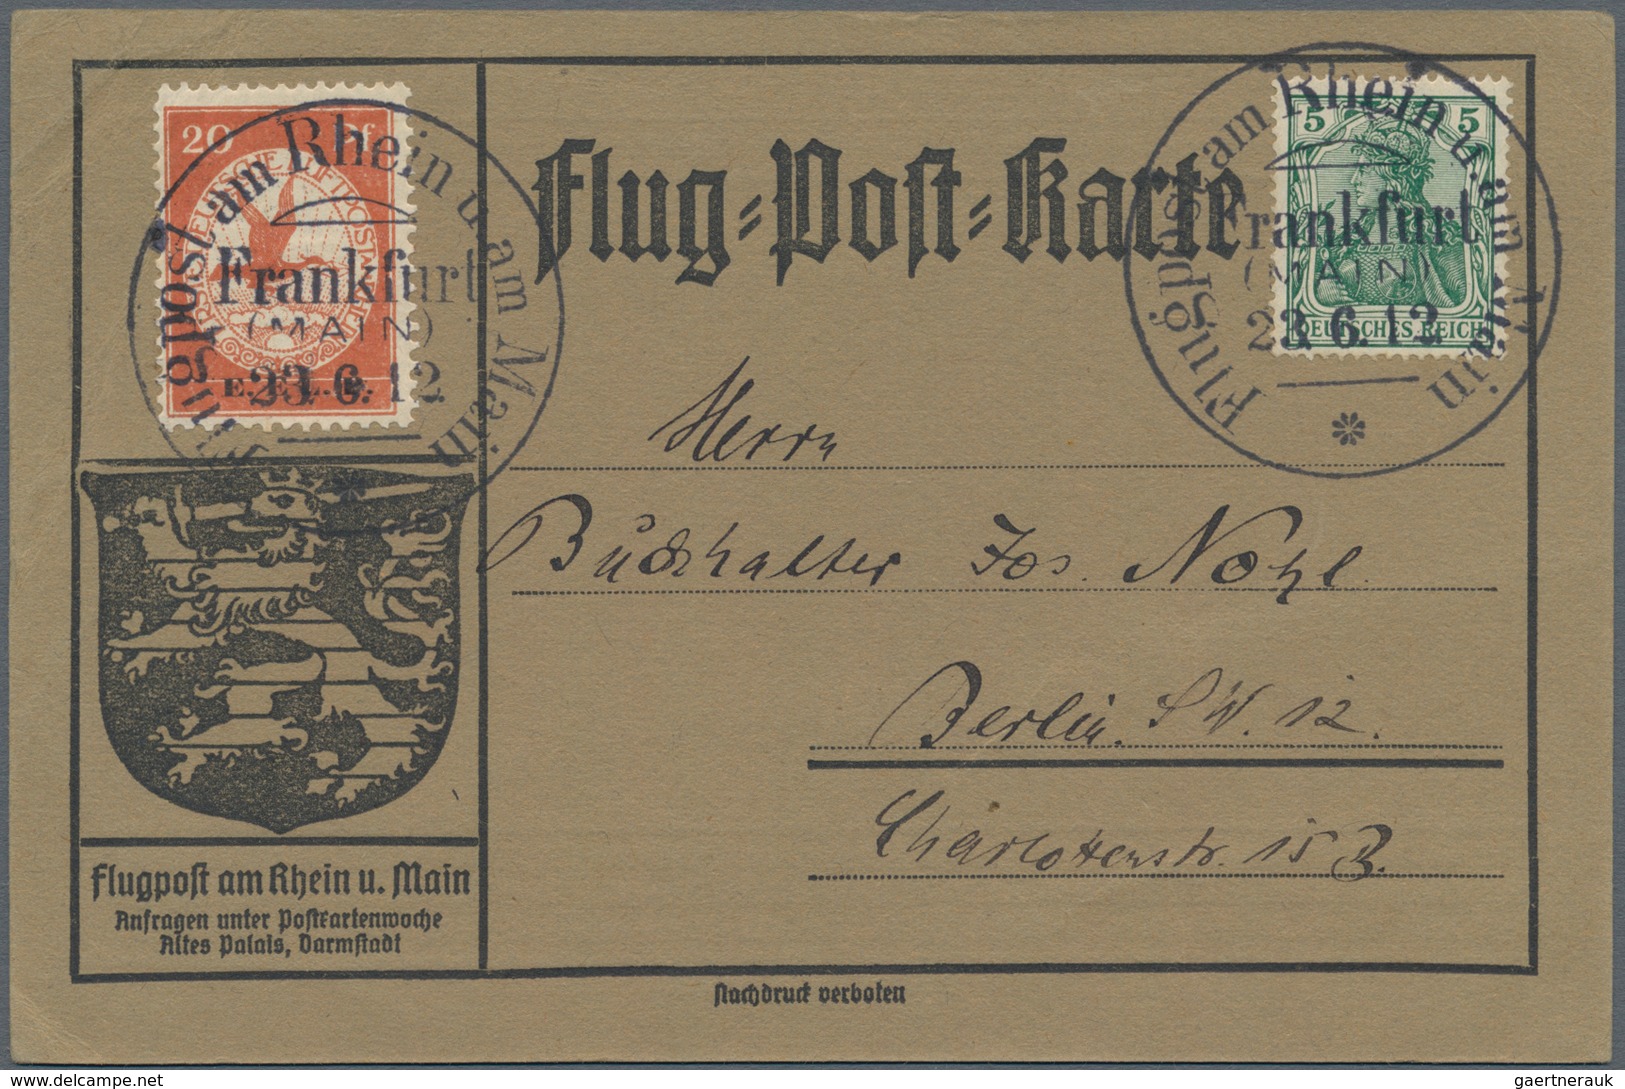 20 Pf
DEUTSCHE LUFTPOST
E.EL.P.
Flugpost am Rhein u. am Main
Frankfurt
(MAIN)
23.6.12
Flug-Post-Karte
5 5
DEUTSCHES REICH
Flugpost am Rhein u. am Main
Frankfurt
(MAIN)
23.6.12
Herrn
Buchhalter Jos. Nohl.
Berlin. S.W. 12.
Charlottenstr. 15 B.
Flugpost am Rhein u. Main
Anfragen unter Postkartenwoche
Altes Palais, Darmstadt
Nachdruck verboten
delcampe.net
gaertnerauk